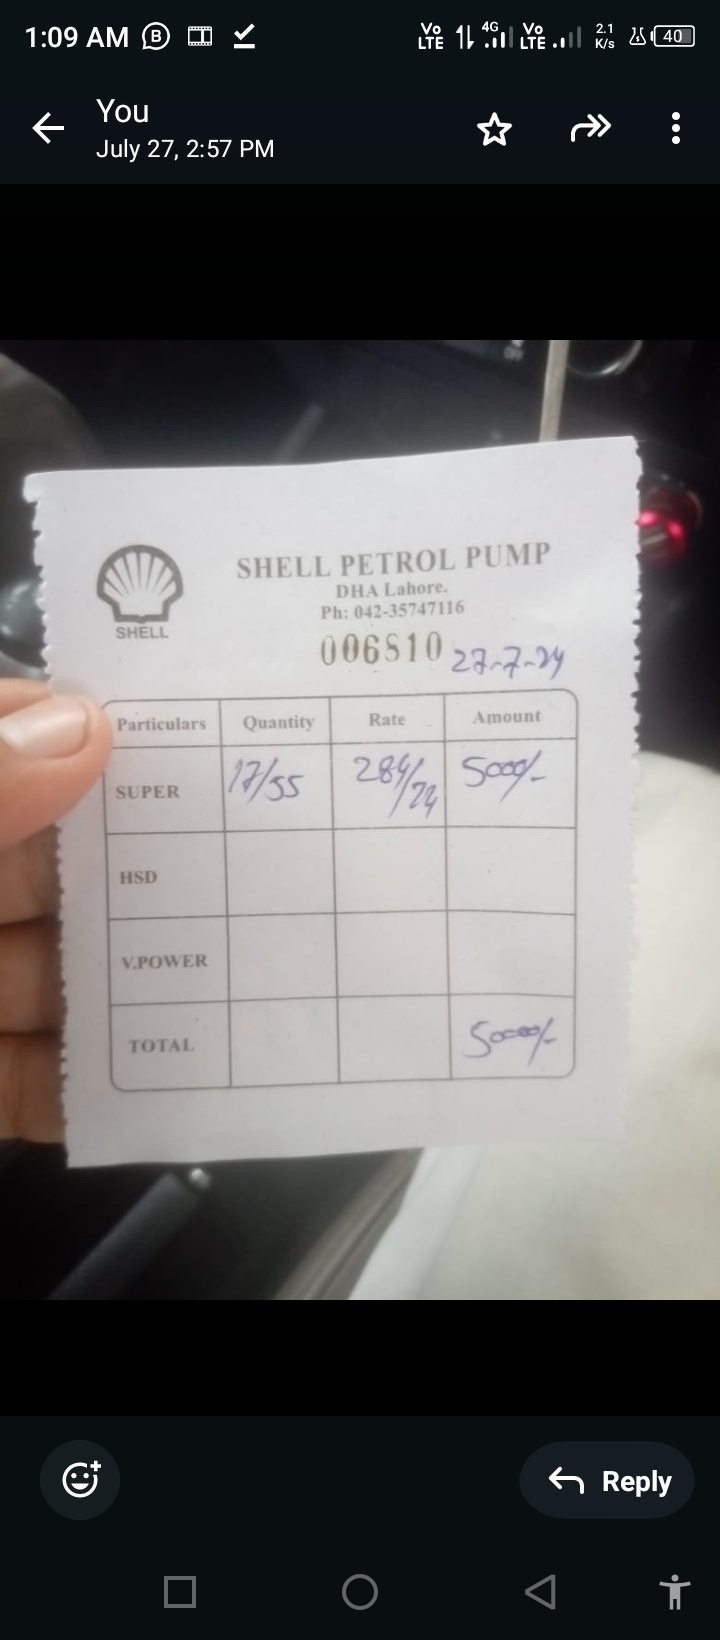 1:09 AM
Vo LTE 4G Vo LTE 2.1 K/s 40
You
July 27, 2:57 PM
SHELL
SHELL PETROL PUMP
DHA Lahore.
Ph: 042-35747116
006810 27-7-24
Particulars Quantity Rate Amount
SUPER 17/55 284/24 5000/-
HSD
V.POWER
TOTAL 5000/-
Reply